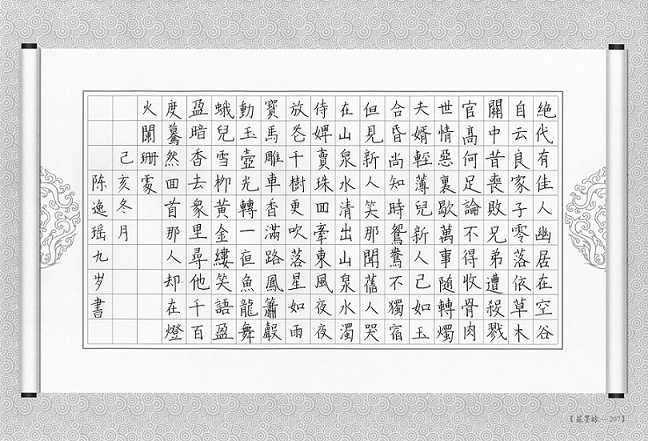 絕代有佳人幽居在空谷
自云良家子零落依草木
關中昔喪敗兄弟遭殺戮
官高何足論不得收骨肉
世情惡衰歇萬事隨轉燭
夫婿輕薄兒新人已如玉
合昏尚知時鴛鴦不獨宿
但見新人笑那聞舊人哭
在山泉水清出山泉水濁
侍婢賣珠回牽東風夜夜
放花千樹更吹落星如雨
寶馬雕車香滿路鳳簫聲
動玉壺光轉一亱魚龍舞
蛾兒雪柳黃金縷笑語盈
盈暗香去衆里尋他千百
度驀然回首那人却在燈
火闌珊處
己亥冬月
陈逸瑶九岁書
207